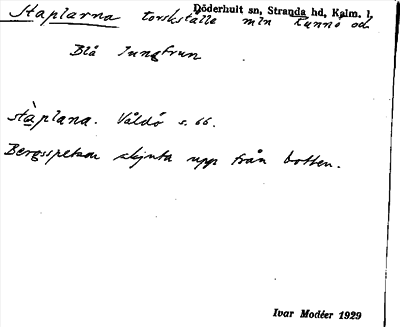 Döderhult sn, Stranda hd, Kalm. l.
Staplarna torskställe mln Runnö och
Blå Jungfrun
stàplana. Våldö s. 66.
Bergsspetsar skjuta upp från botten.
Ivar Modéer 1929